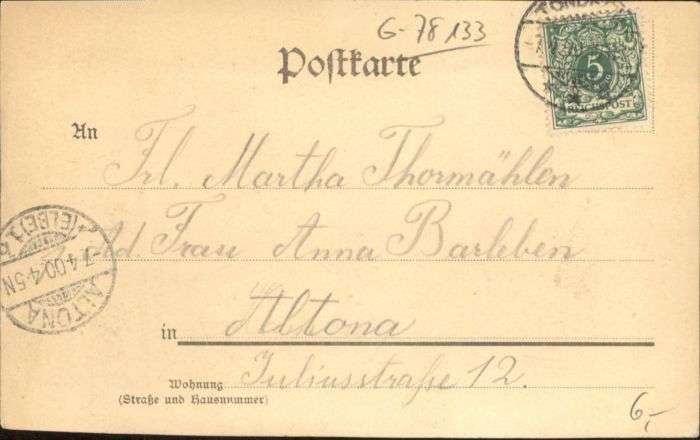 G-78133
Postkarte
5
REICHSPOST
An
Frl. Martha Thormählen
Ad. Frau Anna Barleben
in Altona
Juliusstraße 12.
Wohnung
(Straße und Hausnummer)
ALTONA
(ELBE)
-7.4.00.4-5N
6,-